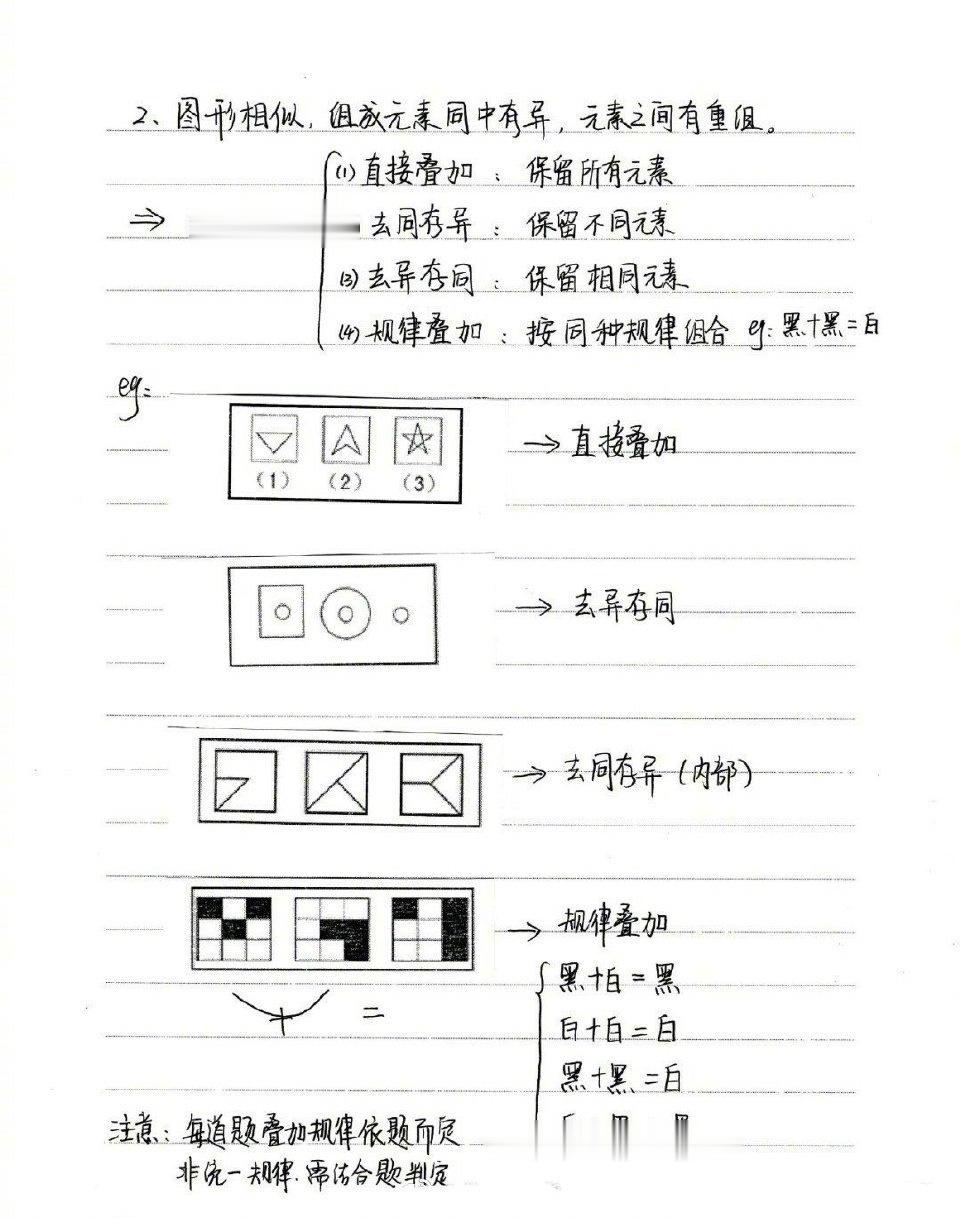 2、图形相似，组成元素同中有异，元素之间有重组。
(1) 直接叠加：保留所有元素
⇒ 去同存异：保留不同元素
(3) 去异存同：保留相同元素
(4) 规律叠加：按同种规律组合 eg: 黑+黑=白
eg:
→ 直接叠加
(1) (2) (3)
→ 去异存同
→ 去同存异 (内部)
→ 规律叠加
黑+白=黑
+ =
白+白=白
黑+黑=白
注意：每道题叠加规律依题而定
非统一规律.需结合题判定